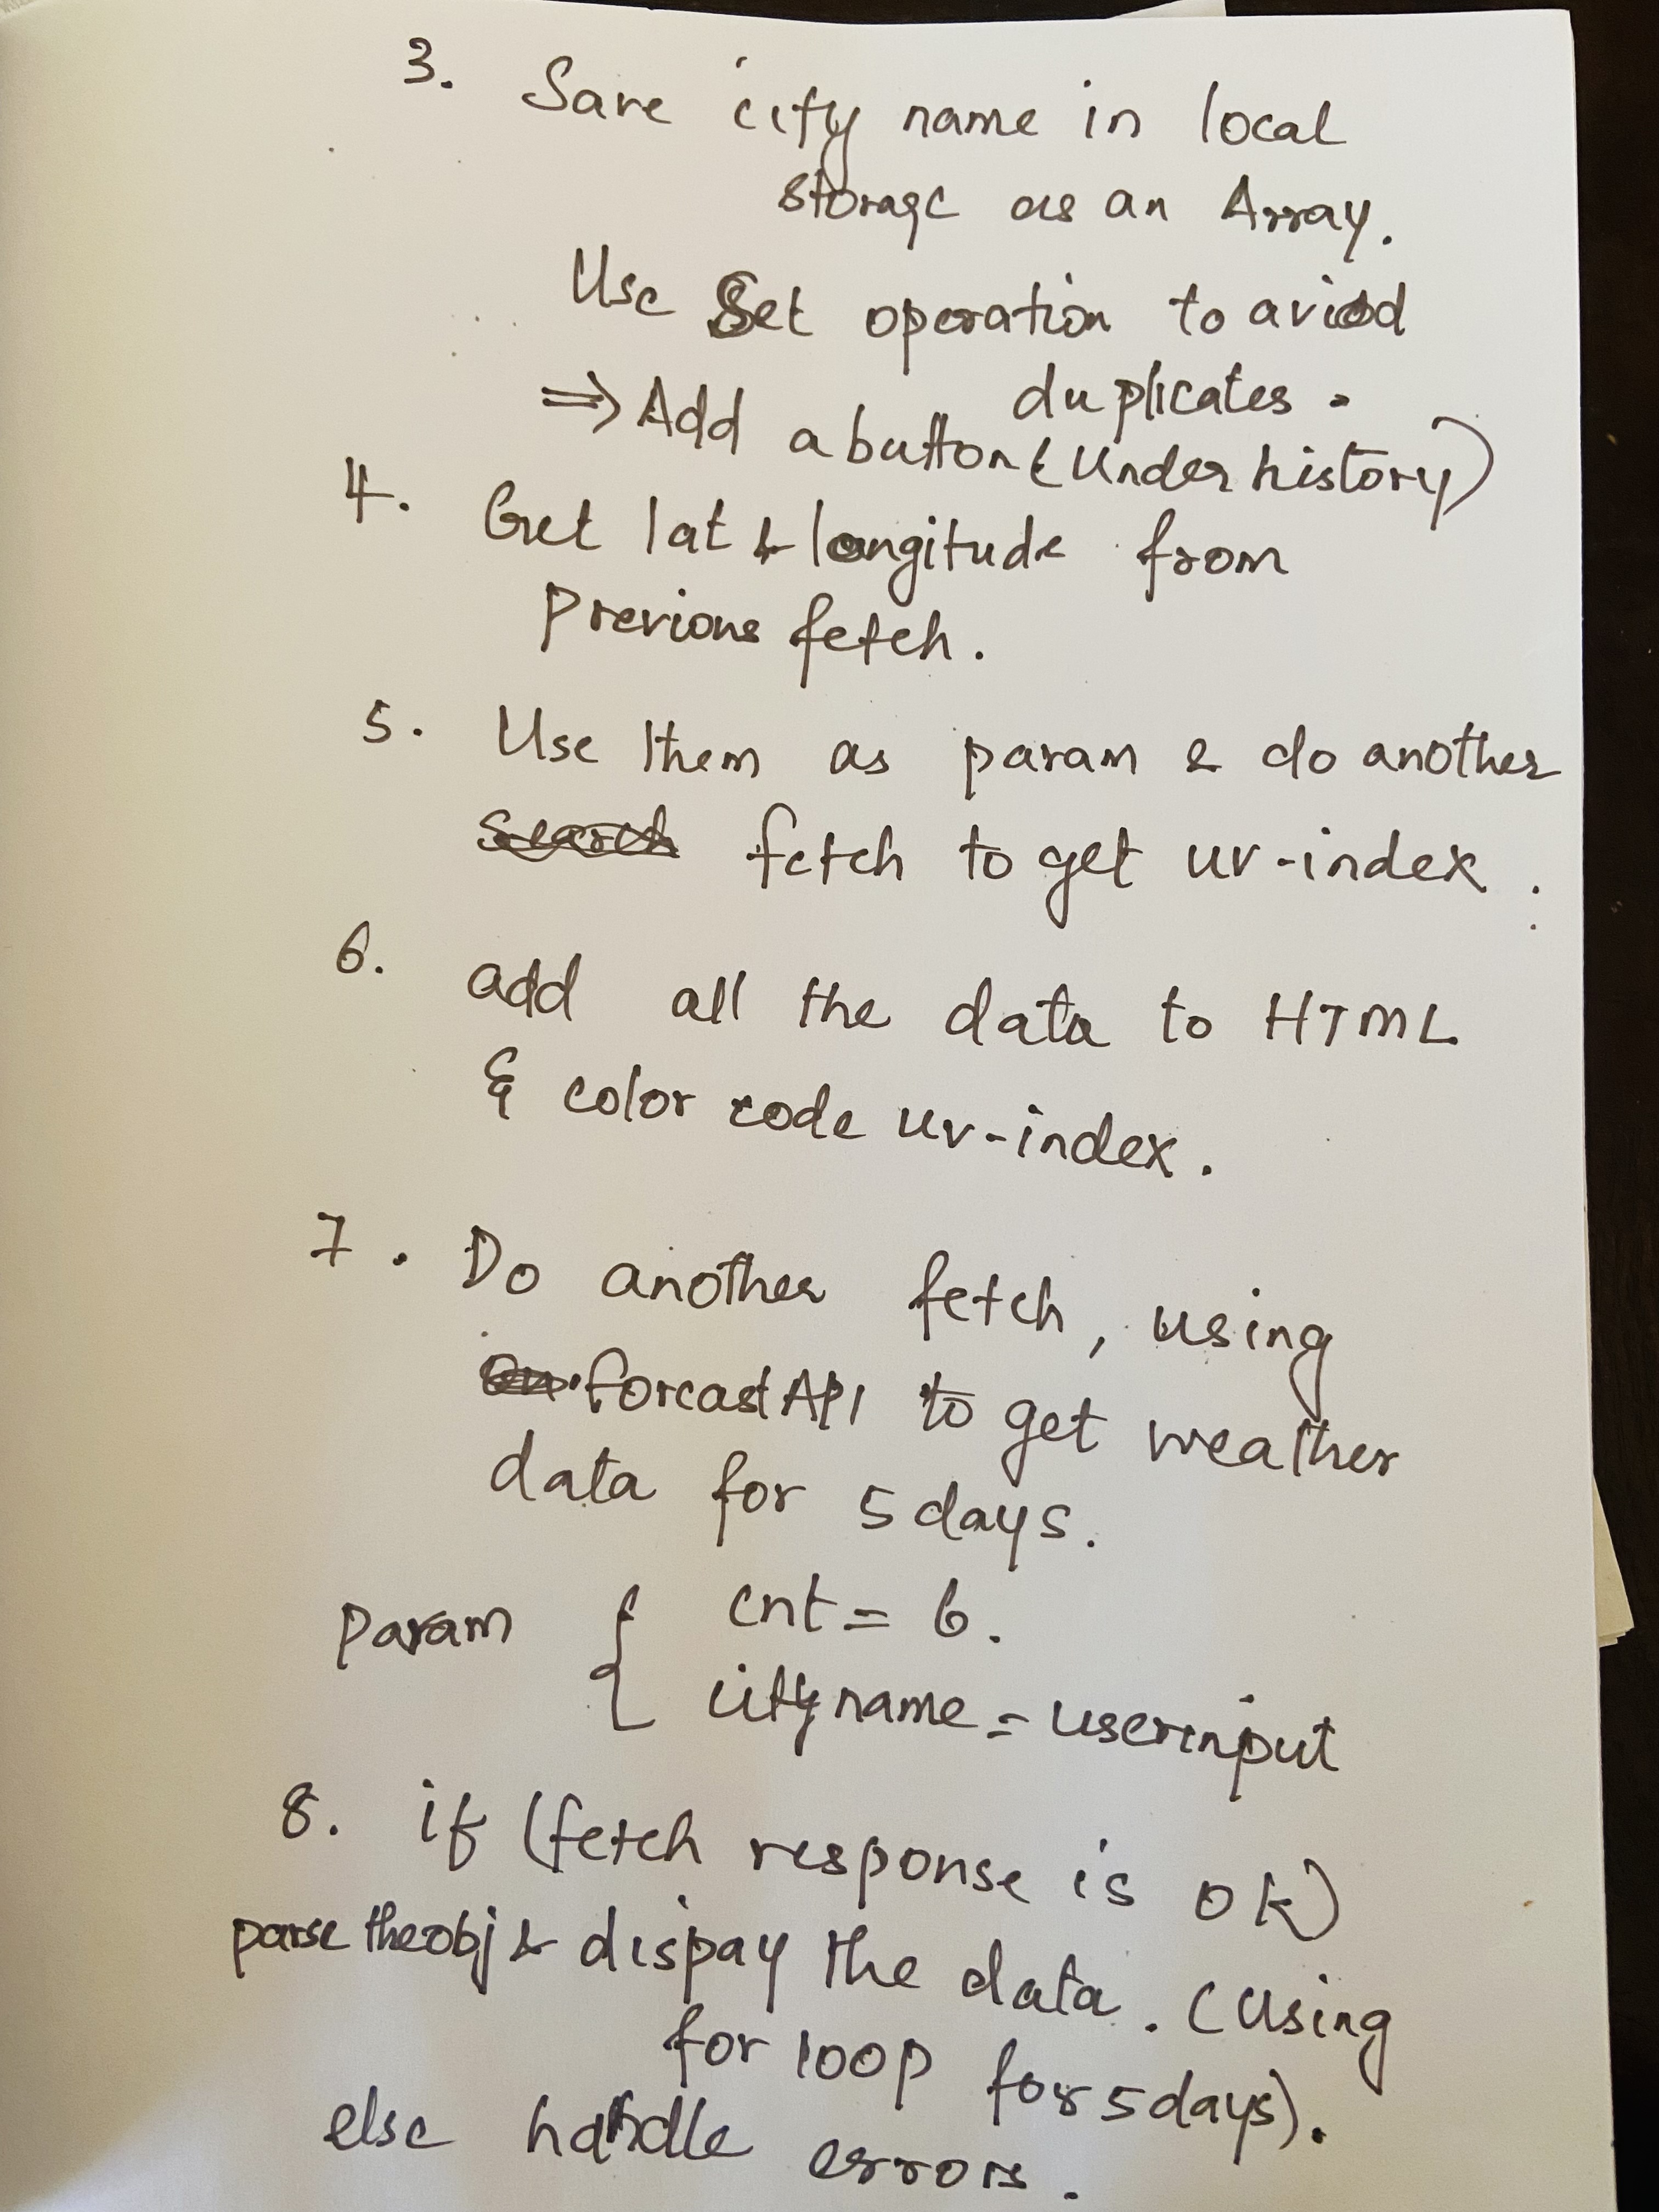 3. Save city name in local
storage as an Array.
Use Set operation to aviod
duplicates.
⇒ Add a button (Under history)
4. Get lat & longitude from
previous fetch.
5. Use them as param & do another
fetch to get uv-index.
6. add all the data to HTML
& color code uv-index.
7. Do another fetch, using
forcast API to get weather
data for 5 days.
Param { cnt = 6.
city name = userinput
8. if (fetch response is ok)
parse the obj & dispay the data. (Using
for loop for 5 days).
else handle errors.